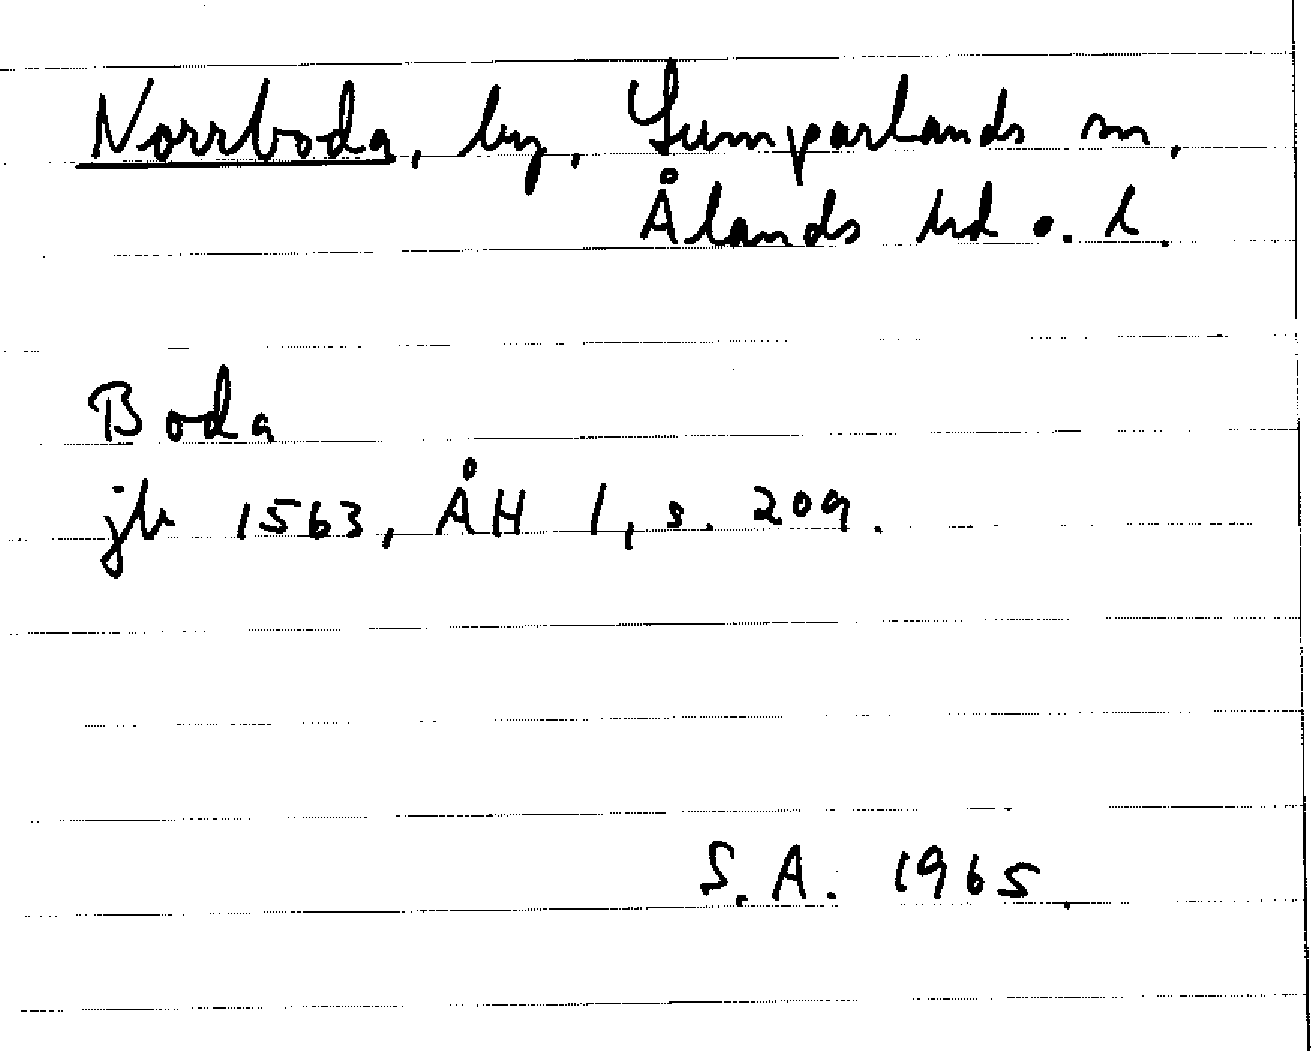 Norrboda, by, Lumparlands sn,
Ålands hd o. l.
Boda
jb 1563, ÅH 1, s. 209.
S.A. 1965.